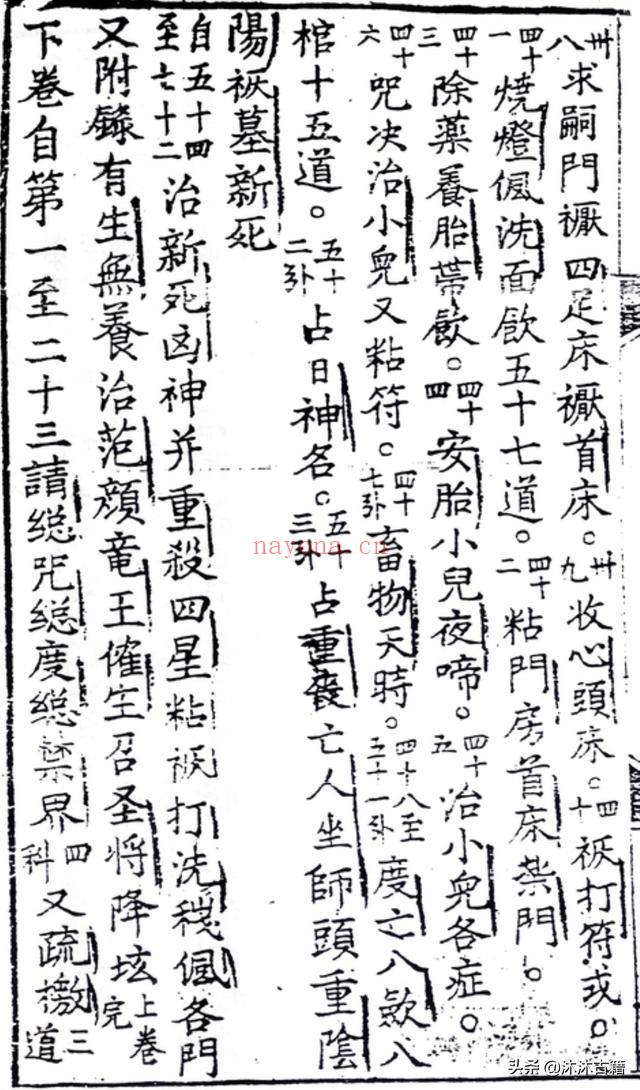 卅八求嗣門禳四足床禳首床。卅九收心頭床。四十袚打符或。
四十一燒燈佩洗面飲五十七道。四十二粘門房首床禁門。
四十三除藥養胎蒂飲。四十四安胎小兒夜啼。四十五治小兒各症。
四十六咒决治小兒又粘符。四十七卦畜物天時。四十八至五十一卦度亡八歎八
棺十五道。五十二卦占日神名。五十三卦占重喪亡人坐師頭重陰
陽袚墓新死
自五十四至七十二治新死凶神并重殺四星粘袚打洗穢佩各門
又附錄有生無養治范顔竜王傕生召圣将降坛上卷完
下卷自第一至二十三請総咒総度総禁界四科又疏檄三道
nayona.cn
头条 @沐沐古籍